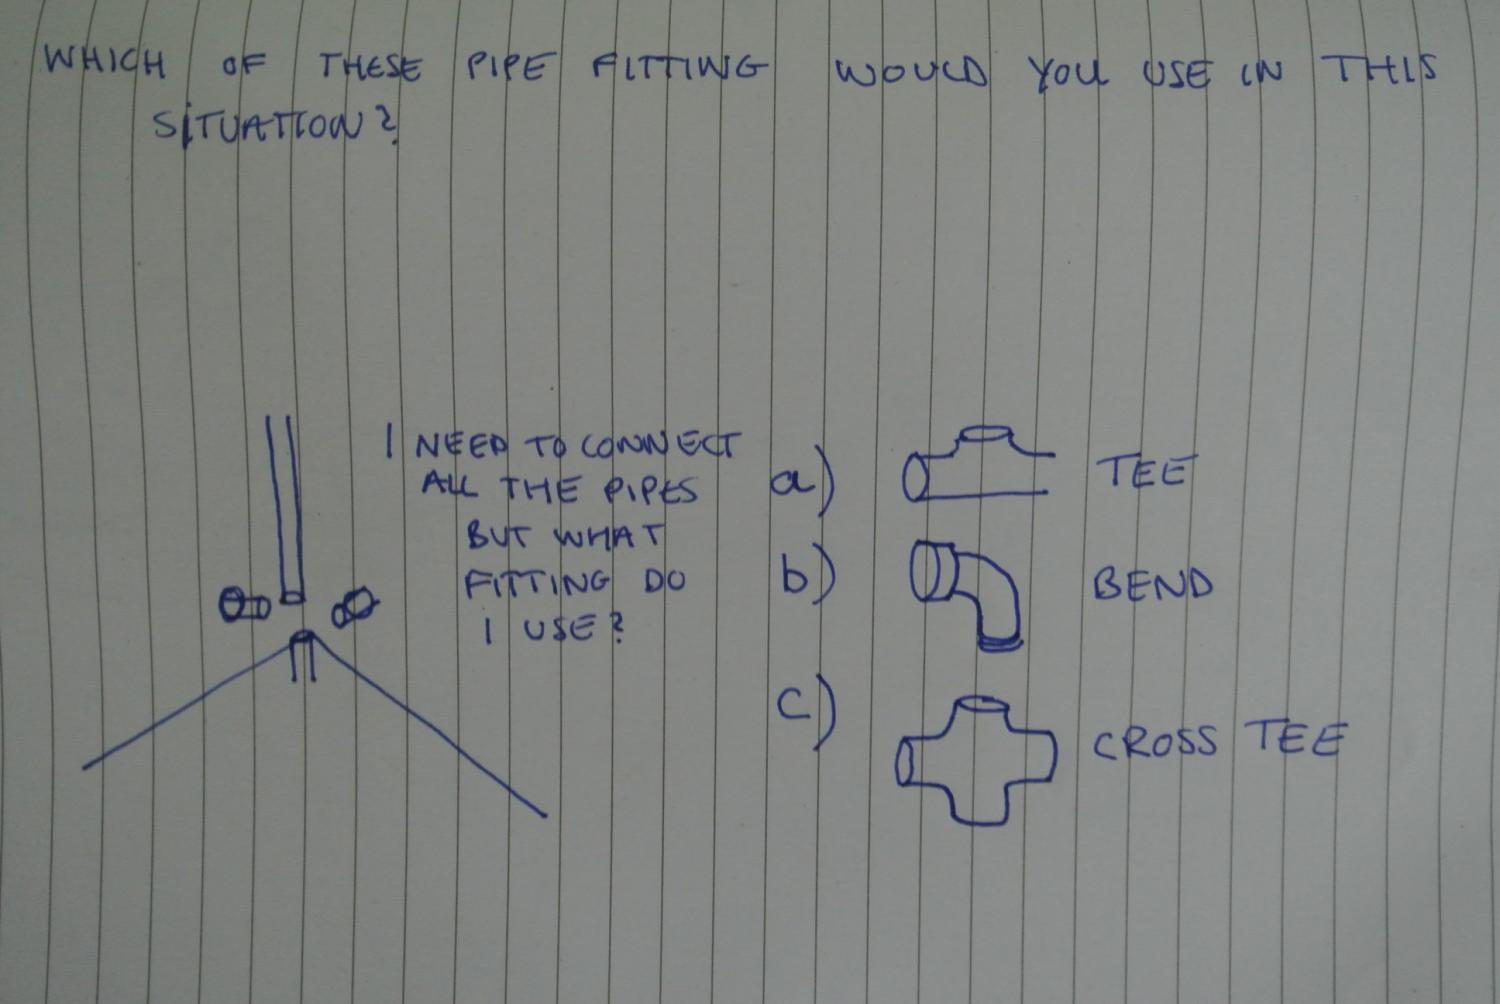 WHICH OF THESE PIPE FITTING WOULD YOU USE IN THIS
SITUATION?
I NEED TO CONNECT
ALL THE PIPES
BUT WHAT
FITTING DO
I USE?
a) TEE
b) BEND
c) CROSS TEE